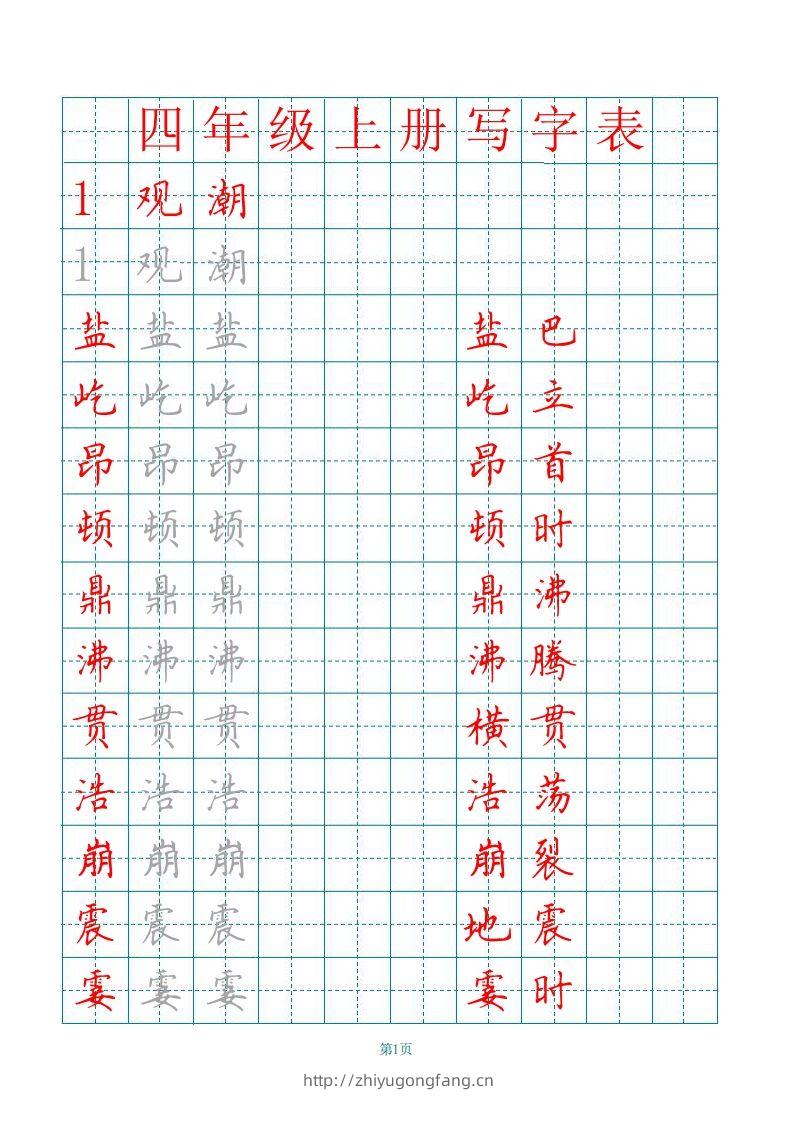 四年级上册写字表
1 观潮
1 观潮
盐 盐 盐 盐巴
屹 屹 屹 屹立
昂 昂 昂 昂首
顿 顿 顿 顿时
鼎 鼎 鼎 鼎沸
沸 沸 沸 沸腾
贯 贯 贯 横贯
浩 浩 浩 浩荡
崩 崩 崩 崩裂
震 震 震 地震
霎 霎 霎 霎时
第1页
http://zhiyugongfang.cn